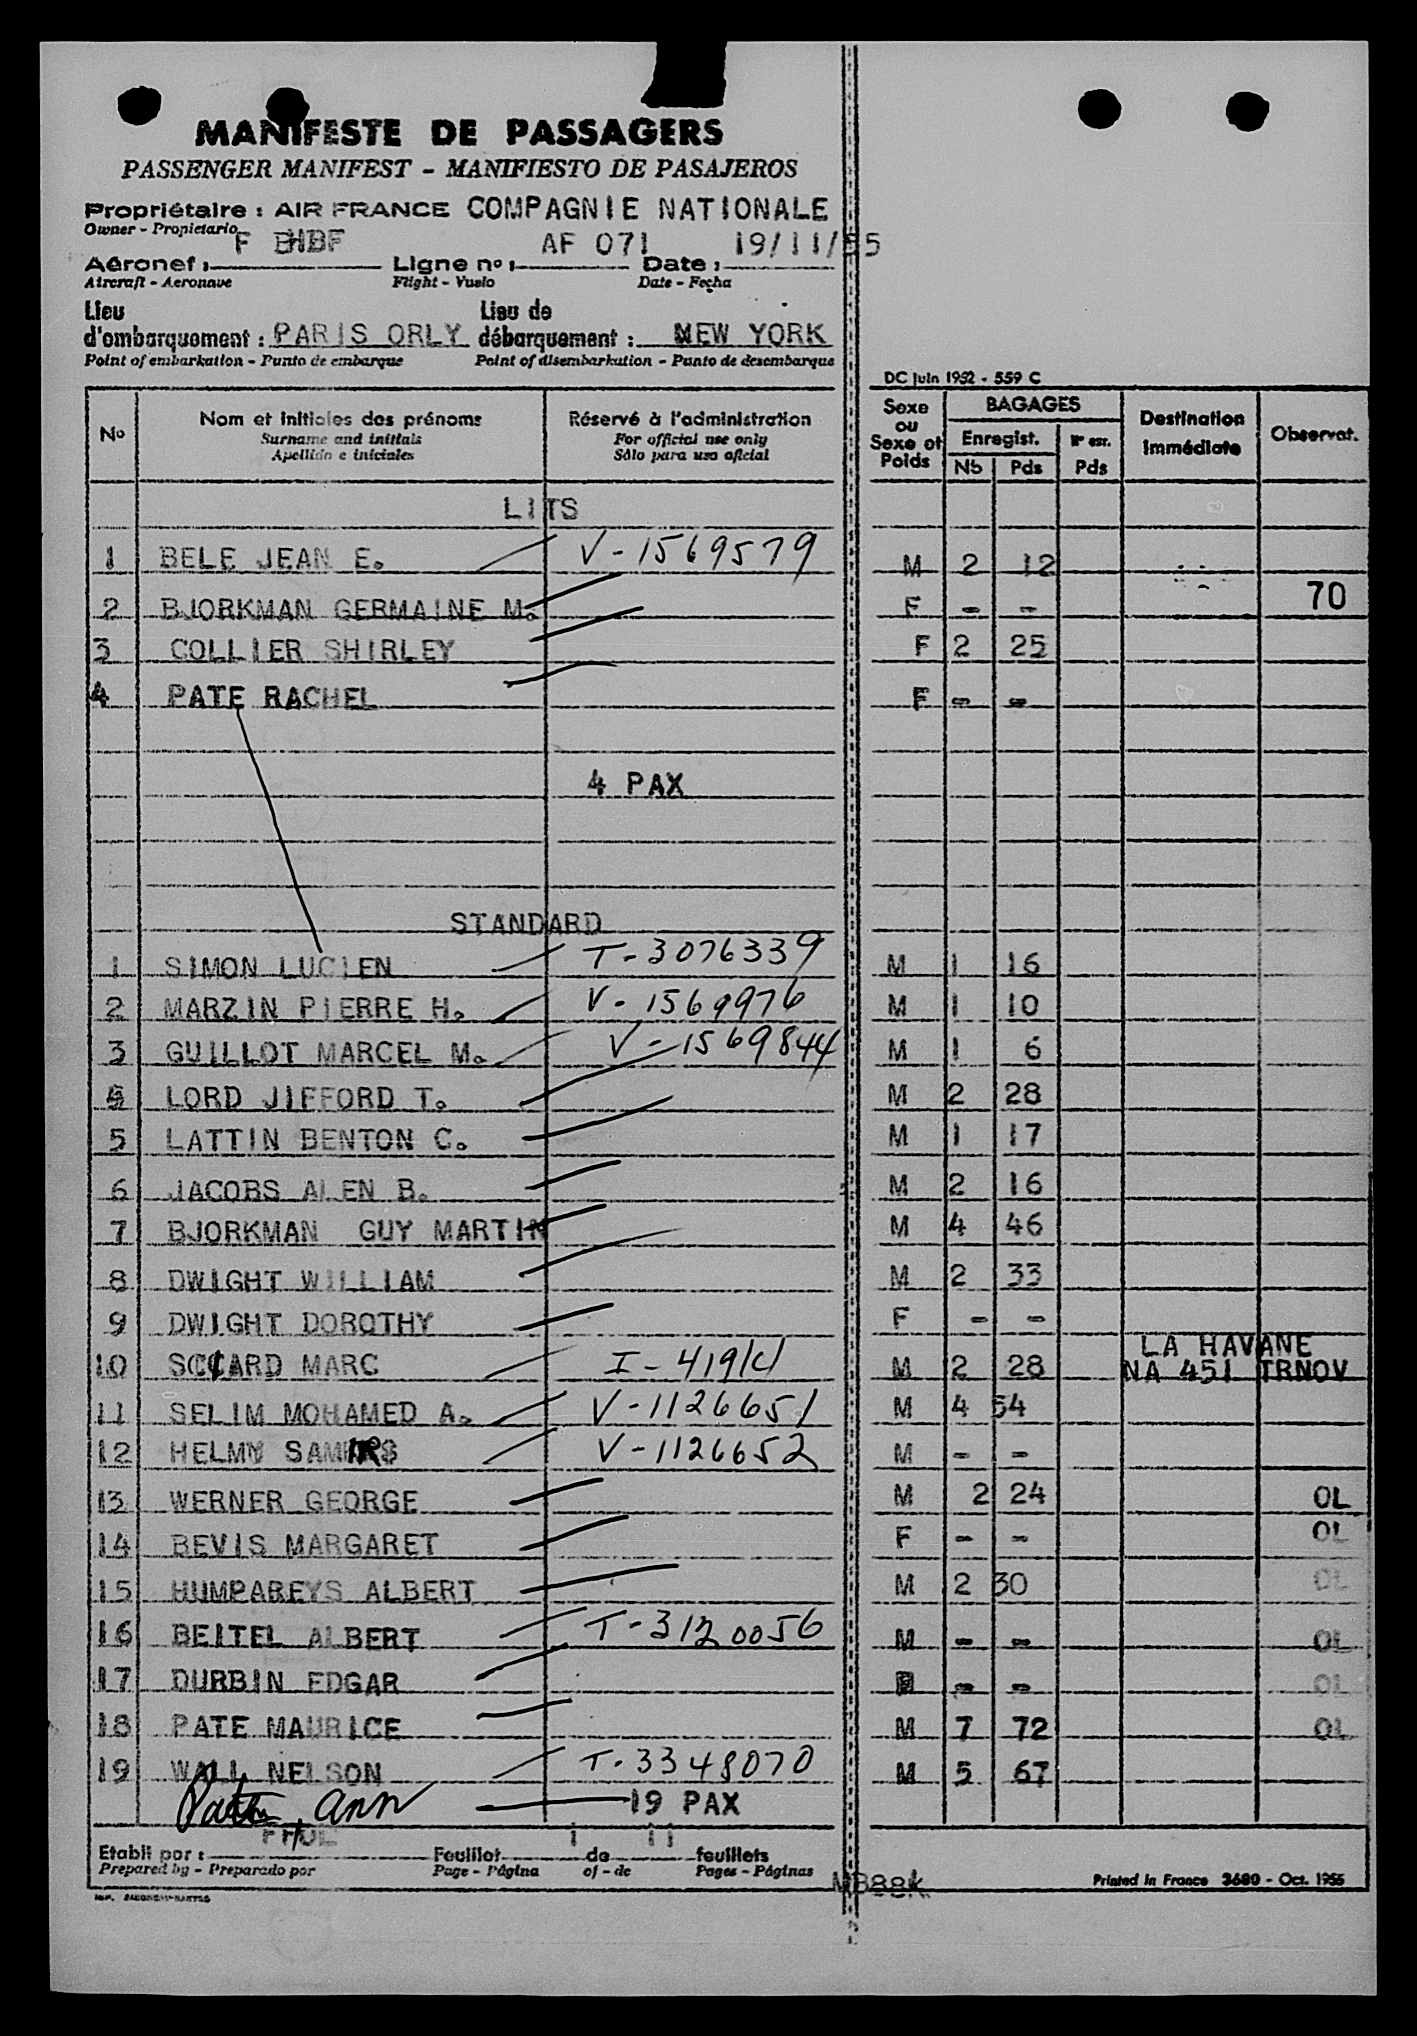 MANIFESTE DE PASSAGERS
PASSENGER MANIFEST - MANIFIESTO DE PASAJEROS
Propriétaire : AIR FRANCE COMPAGNIE NATIONALE
Owner - Propietario
F BHBF AF 071 19/11/55
Aéronef : Ligne no : Date :
Aircraft - Aeronave Flight - Vuelo Date - Fecha
Lieu d'embarquement : PARIS ORLY Lieu de débarquement : NEW YORK
Point of embarkation - Punto de embarque Point of disembarkation - Punto de desembarque
DC Juin 1952 - 559 C
No Nom et initiales des prénoms Réservé à l'administration Sexe ou Sexe et Poids BAGAGES Destination immédiate Observat.
Surname and initials For official use only Enregist. Nr enr.
Apellido e iniciales Sólo para uso oficial Nb Pds Pds
LITS
1 BELE JEAN E. V-1569579 M 2 12
2 BJORKMAN GERMAINE M. F - - 70
3 COLLIER SHIRLEY F 2 25
4 PATE RACHEL F - -
4 PAX
STANDARD
1 SIMON LUCIEN T-3076339 M 1 16
2 MARZIN PIERRE H. V-1569976 M 1 10
3 GUILLOT MARCEL M. V-1569844 M 1 6
4 LORD JIFFORD T. M 2 28
5 LATTIN BENTON C. M 1 17
6 JACOBS ALEN B. M 2 16
7 BJORKMAN GUY MARTIN M 4 46
8 DWIGHT WILLIAM M 2 33
9 DWIGHT DOROTHY F - -
LA HAVANE
10 SICARD MARC I-41914 M 2 28 NA 451 TRNOV
11 SELIM MOHAMED A. V-1126651 M 4 54
12 HELMY V-1126652 M - -
13 WERNER GEORGE M 2 24 OL
14 BEVIS MARGARET F - - OL
15 HUMPAREYS ALBERT M 2 30 OL
16 BEITEL ALBERT T-3120056 M - - OL
17 DURBIN EDGAR - - OL
18 PATE MAURICE M 7 72 OL
19 WALL NELSON T-3348070 M 5 67
Ann 19 PAX
Etabli par : Feuillet 1 de 11 feuillets
Prepared by - Preparado por Page - Página of - de Pages - Páginas
Printed in France 3680 - Oct. 1955